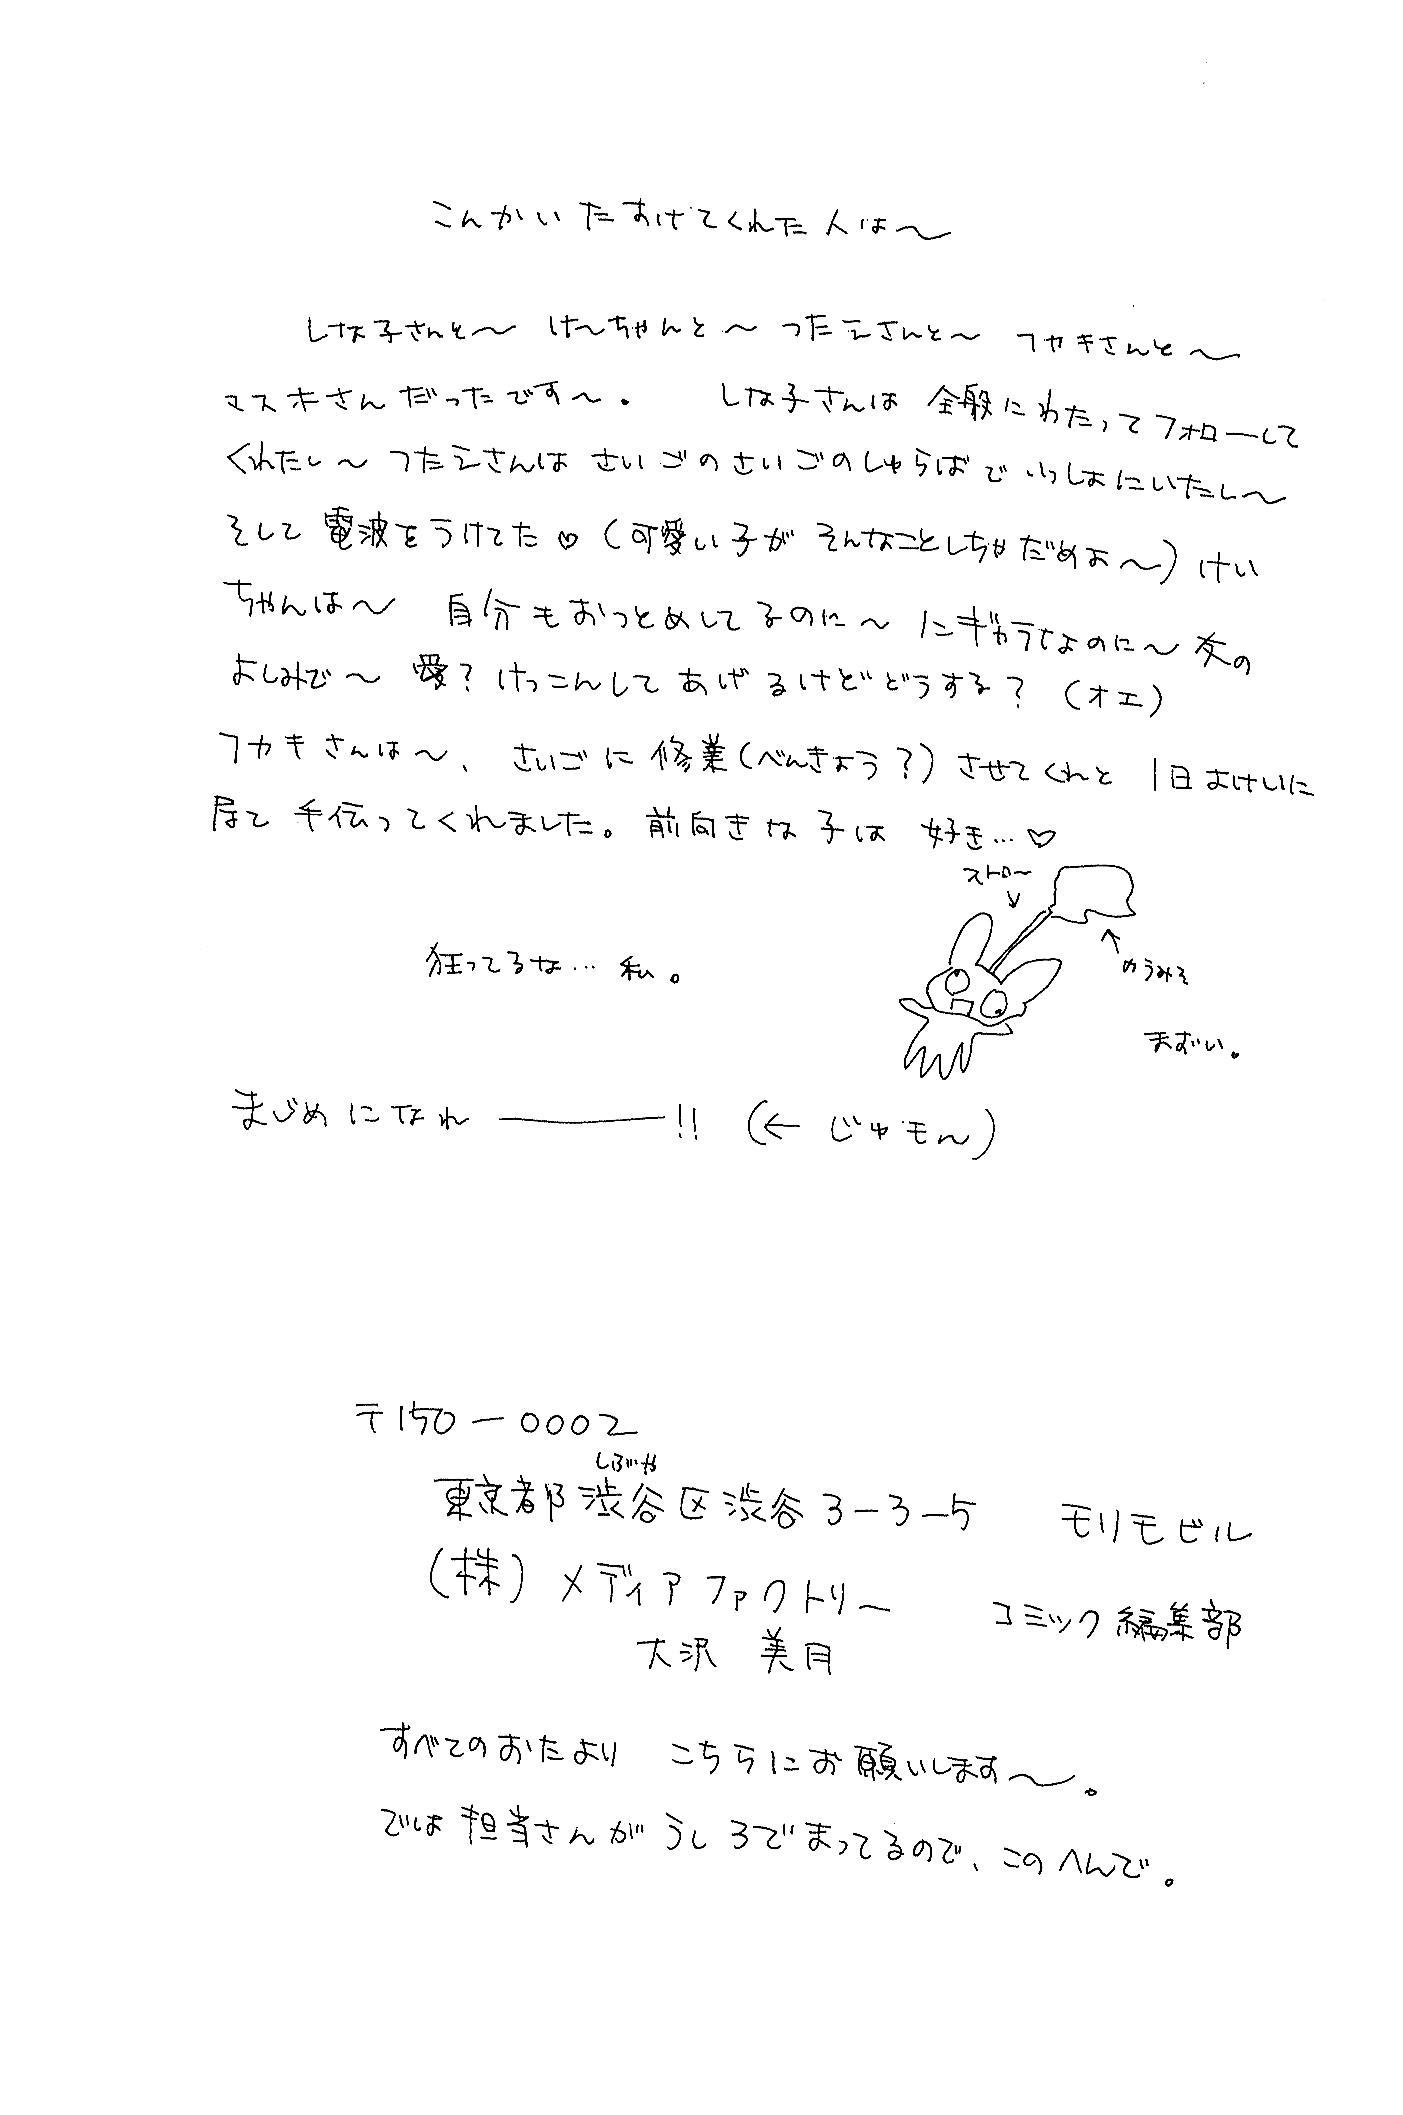 こんかい たすけてくれた 人は〜
しな子さんと〜 けーちゃんと〜 つたえさんと〜 フカキさんと〜
マスホさんだったです〜。 しな子さんは 全般にわたってフォローして
くれたし〜 つたえさんは さいごのさいごのしゅらばで いっしょにいたし〜
そして 電波をうけてた♡(可愛い子が そんなことしちゃだめよ〜) けい
ちゃんは〜 自分もおつとめしてるのに〜 友の
よしみで〜 愛? けっこんして あげるけどどうする? (オエ)
フカキさんは〜、さいごに修業(べんきょう?)させてくれと 1日よけいに
居て 手伝ってくれました。前向きな子は 好き…♡
ストロー
↓
↑
のうみそ
まずい。
狂ってるな… 私。
まじめになれ ――――!! (← じゅモん)
〒150-0002
しぶや
東京都渋谷区渋谷3-3-5 モリモビル
(株)メディアファクトリー コミック編集部
大沢 美月
すべてのおたより こちらにお願いします〜。
では担当さんが うしろでまってるので、このへんで。